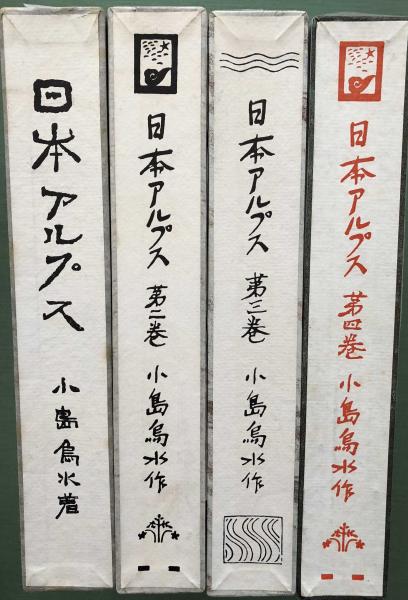 日本アルプス
小島烏水著
日本アルプス 第二巻 小島烏水作
日本アルプス 第三巻 小島烏水作
日本アルプス 第四巻 小島烏水作